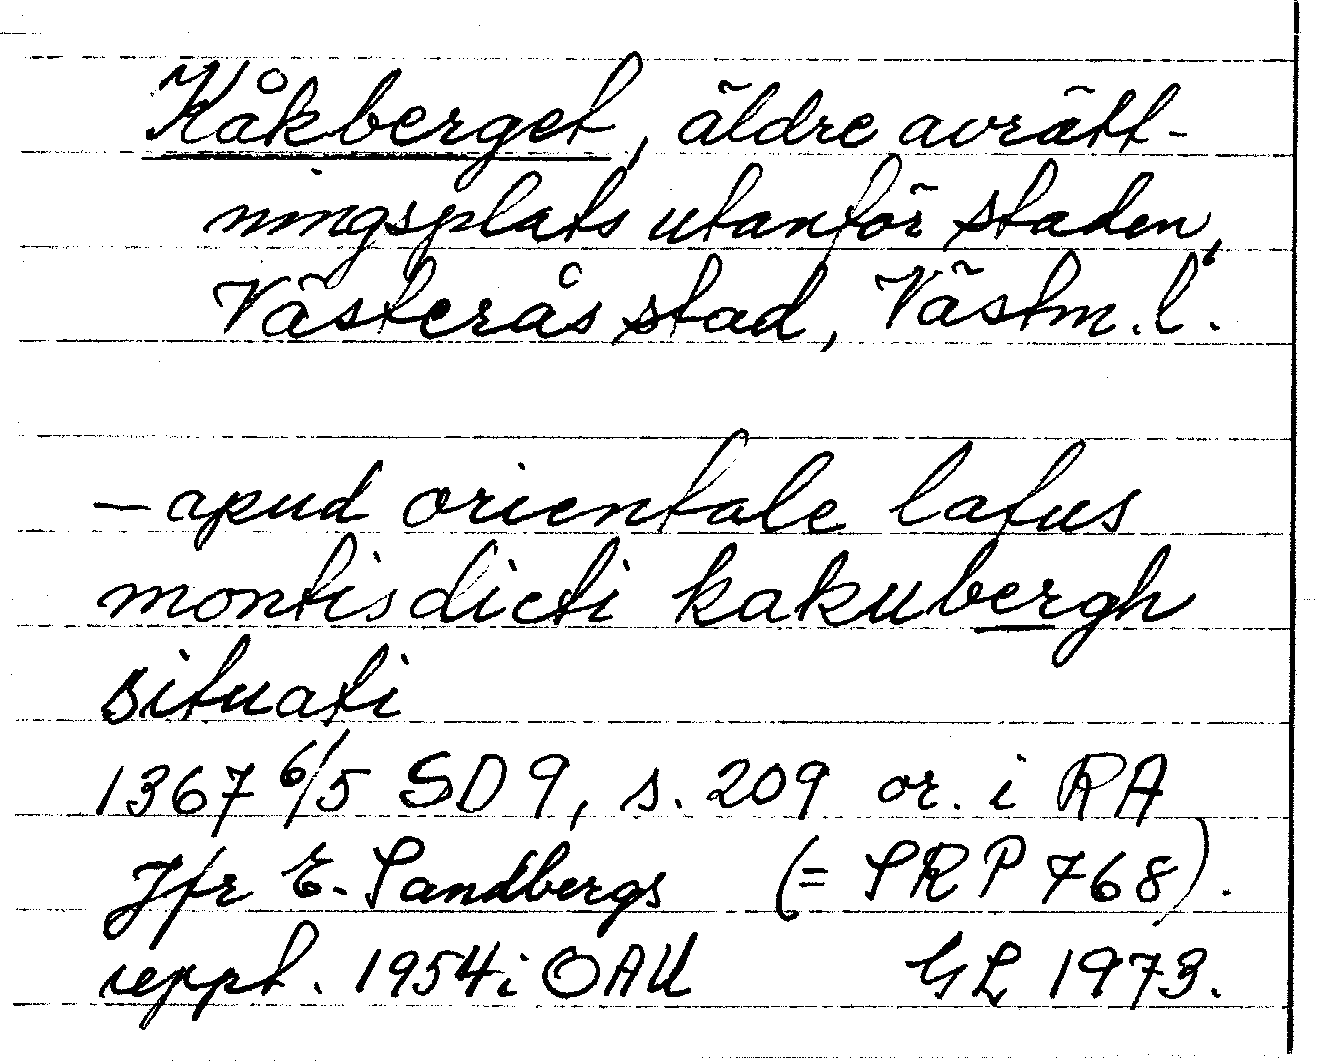 Kåkberget, äldre avrätt-
ningsplats utanför staden,
Västerås stad, Västm. l.
— apud orientale latus
montis dicti kakubergh
situati
1367 6/5 SD 9, s. 209 or. i RA
Jfr E. Sandbergs (= SRP 768).
reppt. 1954 i OAU GL 1973.